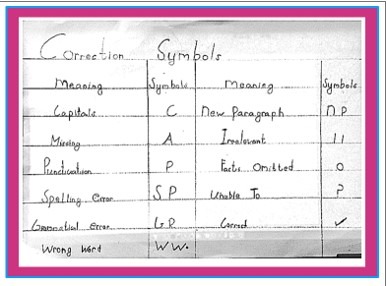 Correction Symbols
Meaning Symbols Meaning Symbols
Capitals C New Paragraph n P
Missing A Irrelevant 11
Punctuation P Facts Omitted o
Spelling Error S P Unable To ?
Error G P Correct ✓
Wrong Word WW.